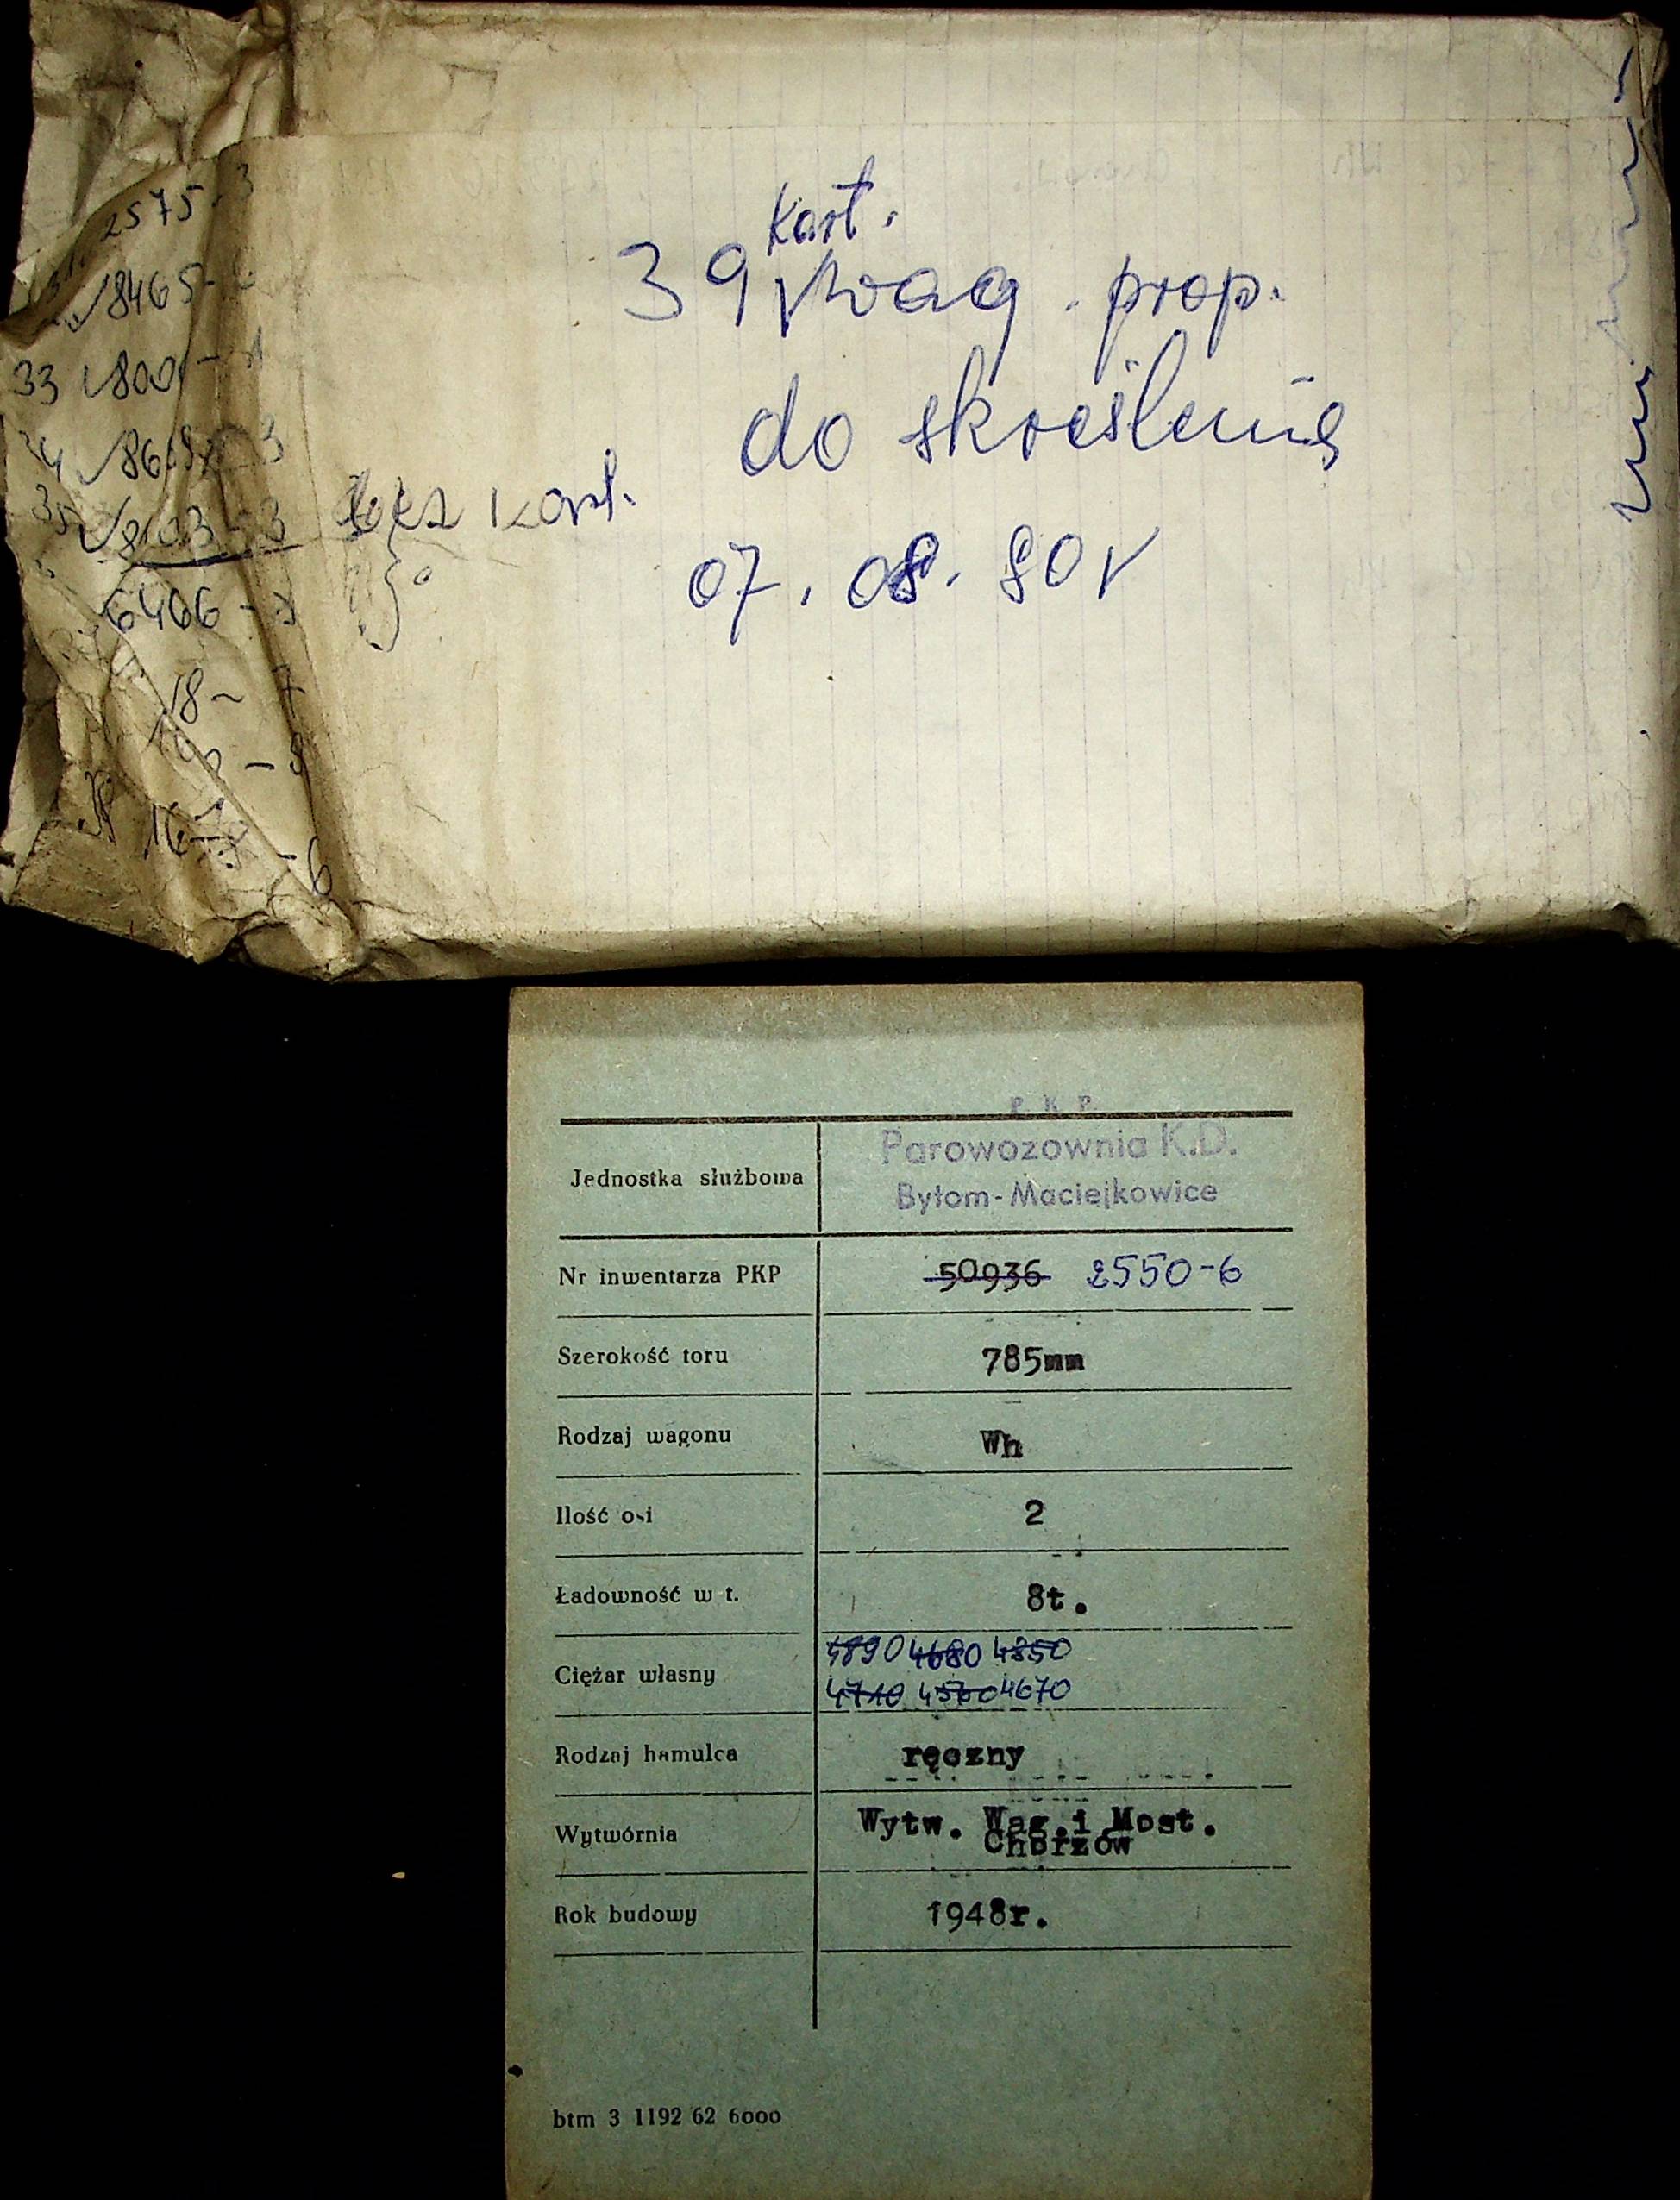 Kart.
39 wag. prop.
do skreślenia
07. 08. 90 r
bez kart.
2575-3
8465-
33 800
35 8103-3
6466-
18-
P. K. P.
Parowozownia K.D.
Bytom-Maciejkowice
Jednostka służbowa
Nr inwentarza PKP 50936 2550-6
Szerokość toru 785mm
Rodzaj wagonu Wh
Ilość osi 2
Ładowność w t. 8t.
4890 4680 4850
Ciężar własny
4710 4560 4670
Rodzaj hamulca ręczny
Wytwórnia Wytw. Wag.i Most.
Chorzów
Rok budowy 1948r.
btm 3 1192 62 6000